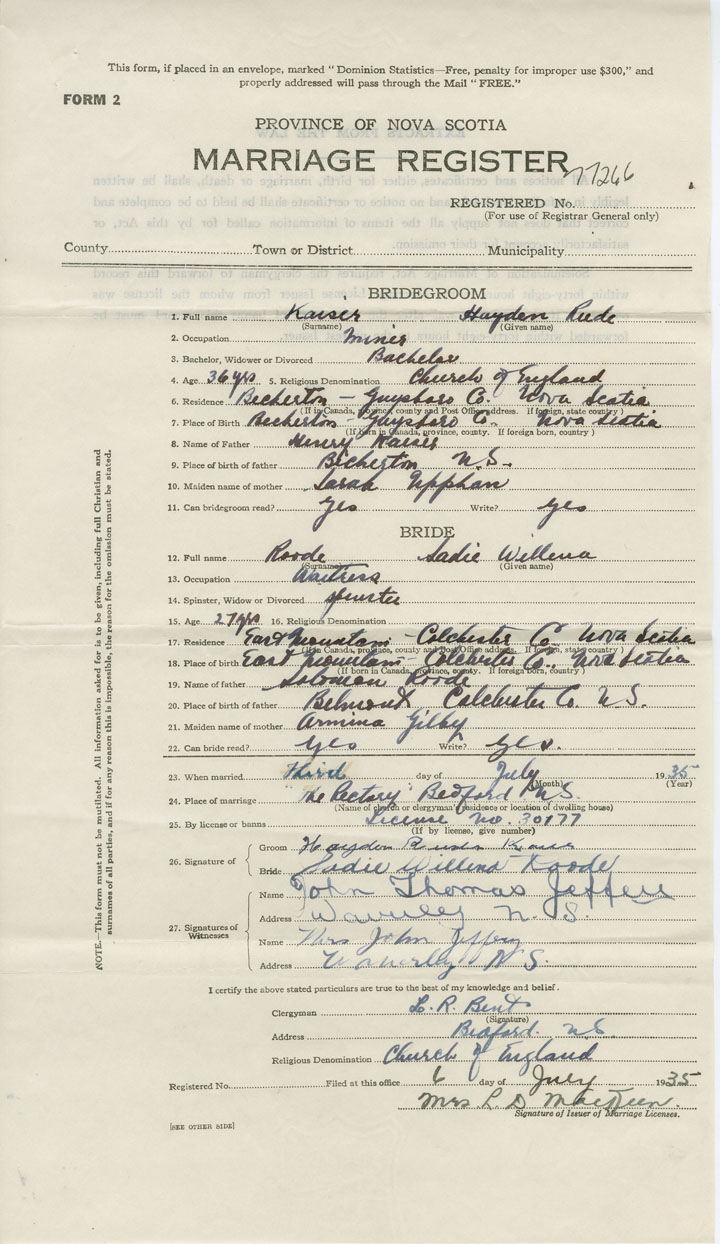 This form, if placed in an envelope, marked "Dominion Statistics—Free, penalty for improper use $300," and
properly addressed will pass through the Mail "FREE."
FORM 2
PROVINCE OF NOVA SCOTIA
MARRIAGE REGISTER
77266
REGISTERED No.
(For use of Registrar General only)
County Town or District Municipality
BRIDEGROOM
1. Full name Kaiser Hayden Rude
(Surname) (Given name)
2. Occupation Miner
3. Bachelor, Widower or Divorced Bachelor
4. Age 36 yrs 5. Religious Denomination Church of England
6. Residence Bickerton - Guysboro Co. Nova Scotia
(If in Canada, province, county and Post Office address. If foreign, state country)
7. Place of Birth Bickerton - Guysboro Co. Nova Scotia
(If born in Canada, province, county. If foreign born, country)
8. Name of Father Henry Kaiser
9. Place of birth of father Bickerton N.S.
10. Maiden name of mother Sarah
11. Can bridegroom read? Yes Write? Yes
BRIDE
12. Full name Roode Sadie Willena
(Surname) (Given name)
13. Occupation Waitress
14. Spinster, Widow or Divorced Spinster
15. Age 27 yrs 16. Religious Denomination
17. Residence East Mountain - Colchester Co Nova Scotia
(If in Canada, province, county and Post Office address. If foreign, state country)
18. Place of birth East Mountain - Colchester Co., Nova Scotia
(If born in Canada, province, county. If foreign born, country)
19. Name of father Soloman Roode
20. Place of birth of father Belmont Colchester Co. N.S.
21. Maiden name of mother Armina Gilby
22. Can bride read? Yes Write? Yes.
23. When married third day of July 1935
(Month) (Year)
24. Place of marriage The Rectory Bedford N.S.
(Name of church or clergyman's residence or location of dwelling house)
25. By license or banns License No. 30177
(If by license, give number)
26. Signature of
Groom Hayden
Bride Sadie Willena Roode
27. Signatures of Witnesses
Name John Thomas Jeffery
Address Waverley N.S.
Name Mrs John Jeffery
Address Waverley N S.
I certify the above stated particulars are true to the best of my knowledge and belief.
Clergyman L. R. Bent
(Signature)
Address Bedford. N.S.
Religious Denomination Church of England
Registered No. Filed at this office 6 day of July 1935
Mrs L D
Signature of Issuer of Marriage Licenses.
[SEE OTHER SIDE]
NOTE.—This form must not be mutilated. All information asked for is to be given, including full Christian and
surnames of all parties, and if for any reason this is impossible, the reason for the omission must be stated.